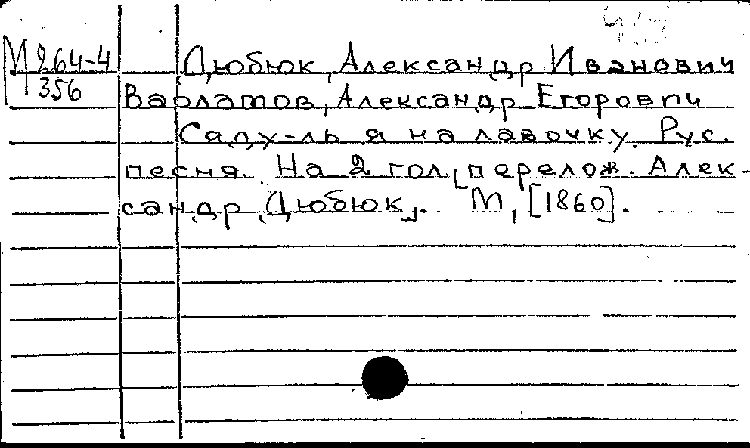 М 264-4
356
Дюбюк, Александр Иванович
Варламов, Александр Егорович
Сяду-ль я на лавочку. Рус.
песня. На 2 гол. [перелож. Алек-
сандр Дюбюк]. М, [1860].